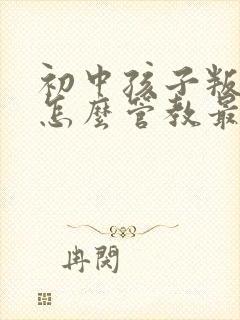 初中孩子叛
怎麼管教最
冉閱